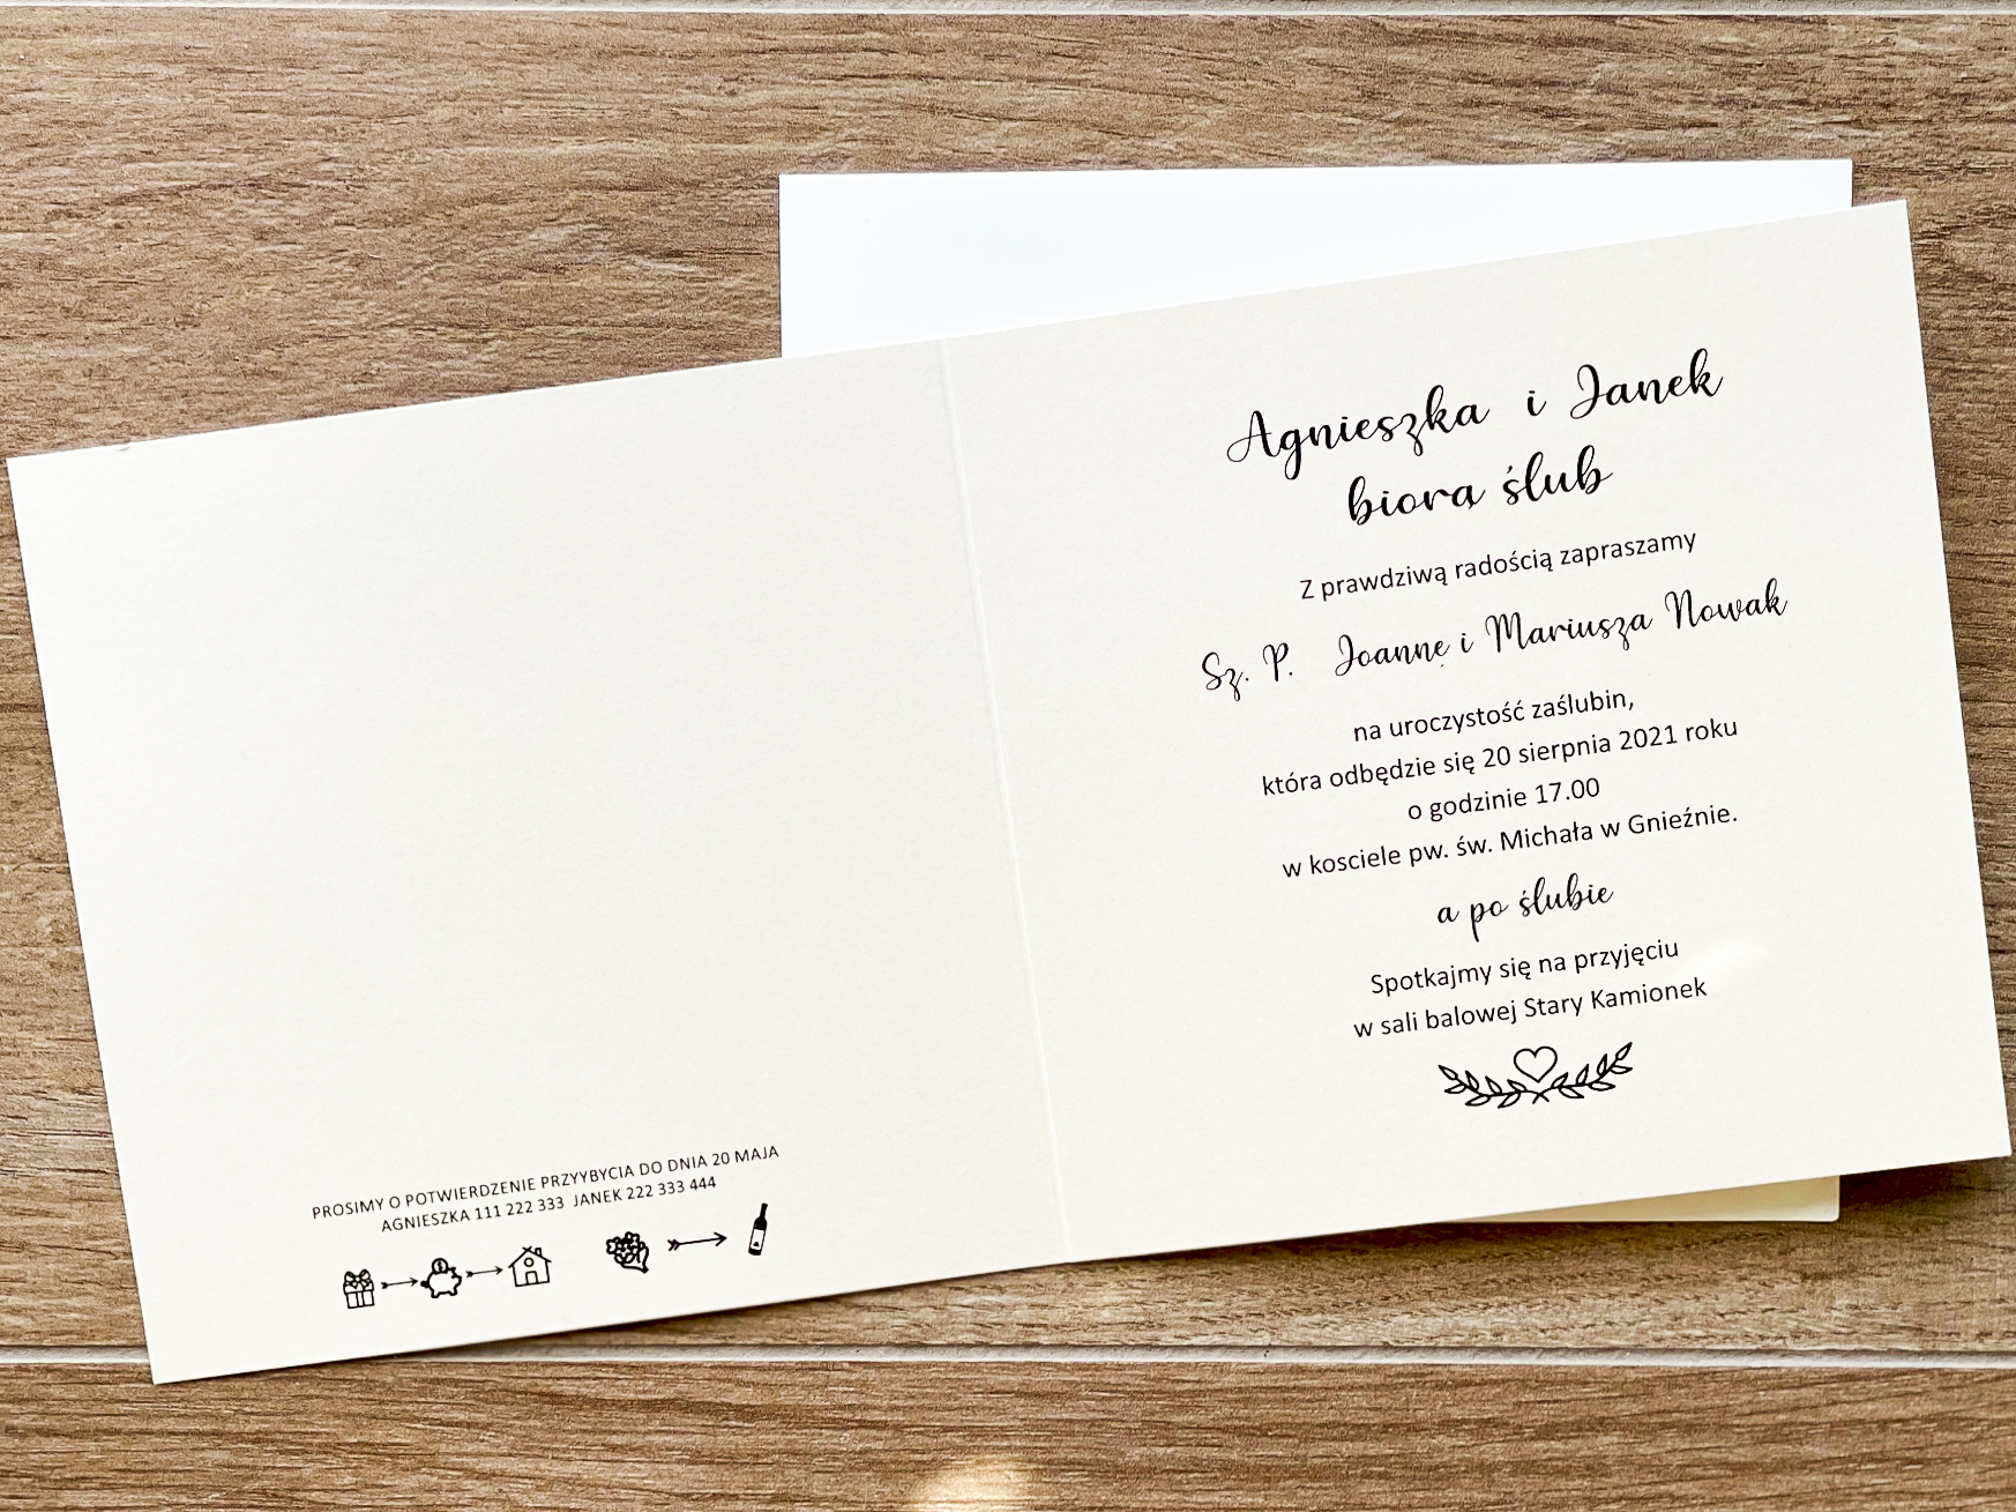 PROSIMY O POTWIERDZENIE PRZYYBYCIA DO DNIA 20 MAJA
AGNIESZKA 111 222 333 JANEK 222 333 444
Agnieszka i Janek
biorą ślub
Z prawdziwą radością zapraszamy
Sz. P. Joannę i Mariusza Nowak
na uroczystość zaślubin,
która odbędzie się 20 sierpnia 2021 roku
o godzinie 17.00
w kosciele pw. św. Michała w Gnieźnie.
a po ślubie
Spotkajmy się na przyjęciu
w sali balowej Stary Kamionek